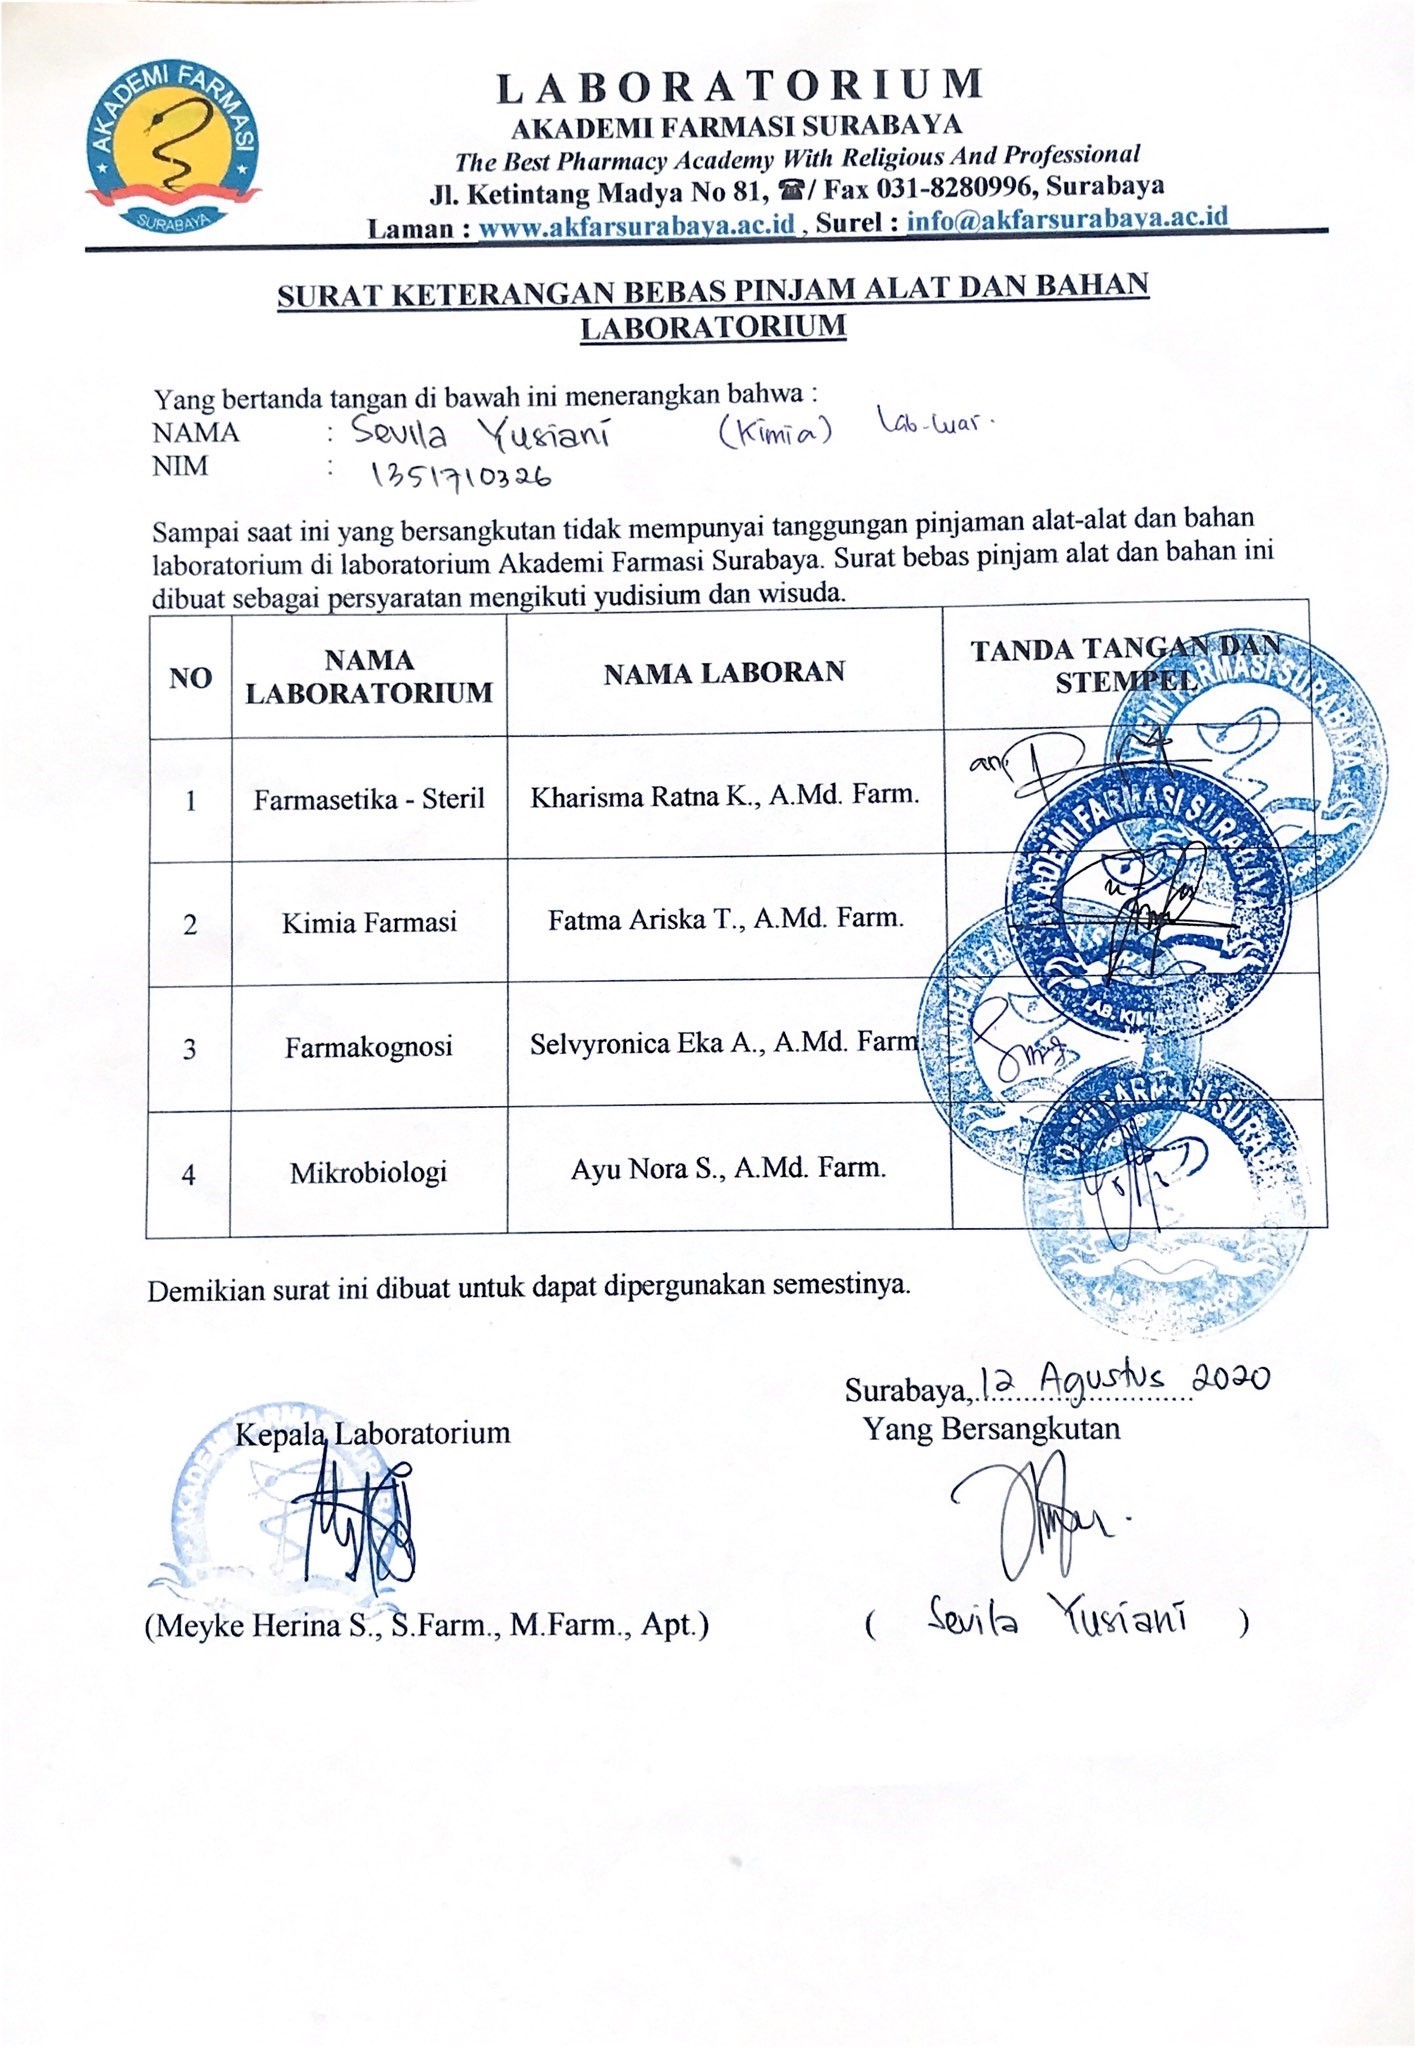 AKADEMI FARMASI
SURABAYA
LABORATORIUM
AKADEMI FARMASI SURABAYA
The Best Pharmacy Academy With Religious And Professional
Jl. Ketintang Madya No 81, ☎/ Fax 031-8280996, Surabaya
Laman : www.akfarsurabaya.ac.id , Surel : info@akfarsurabaya.ac.id
SURAT KETERANGAN BEBAS PINJAM ALAT DAN BAHAN
LABORATORIUM
Yang bertanda tangan di bawah ini menerangkan bahwa :
NAMA : Sevila Yusiani (Kimia) Lab-Luar.
NIM : 1351710326
Sampai saat ini yang bersangkutan tidak mempunyai tanggungan pinjaman alat-alat dan bahan
laboratorium di laboratorium Akademi Farmasi Surabaya. Surat bebas pinjam alat dan bahan ini
dibuat sebagai persyaratan mengikuti yudisium dan wisuda.
NO NAMA LABORATORIUM NAMA LABORAN TANDA TANGAN DAN STEMPEL
1 Farmasetika - Steril Kharisma Ratna K., A.Md. Farm. an.
2 Kimia Farmasi Fatma Ariska T., A.Md. Farm.
3 Farmakognosi Selvyronica Eka A., A.Md. Farm.
4 Mikrobiologi Ayu Nora S., A.Md. Farm.
AKADEMI FARMASI SURABAYA
Demikian surat ini dibuat untuk dapat dipergunakan semestinya.
Surabaya, 12 Agustus 2020
Kepala Laboratorium Yang Bersangkutan
(Meyke Herina S., S.Farm., M.Farm., Apt.) ( Sevila Yusiani )